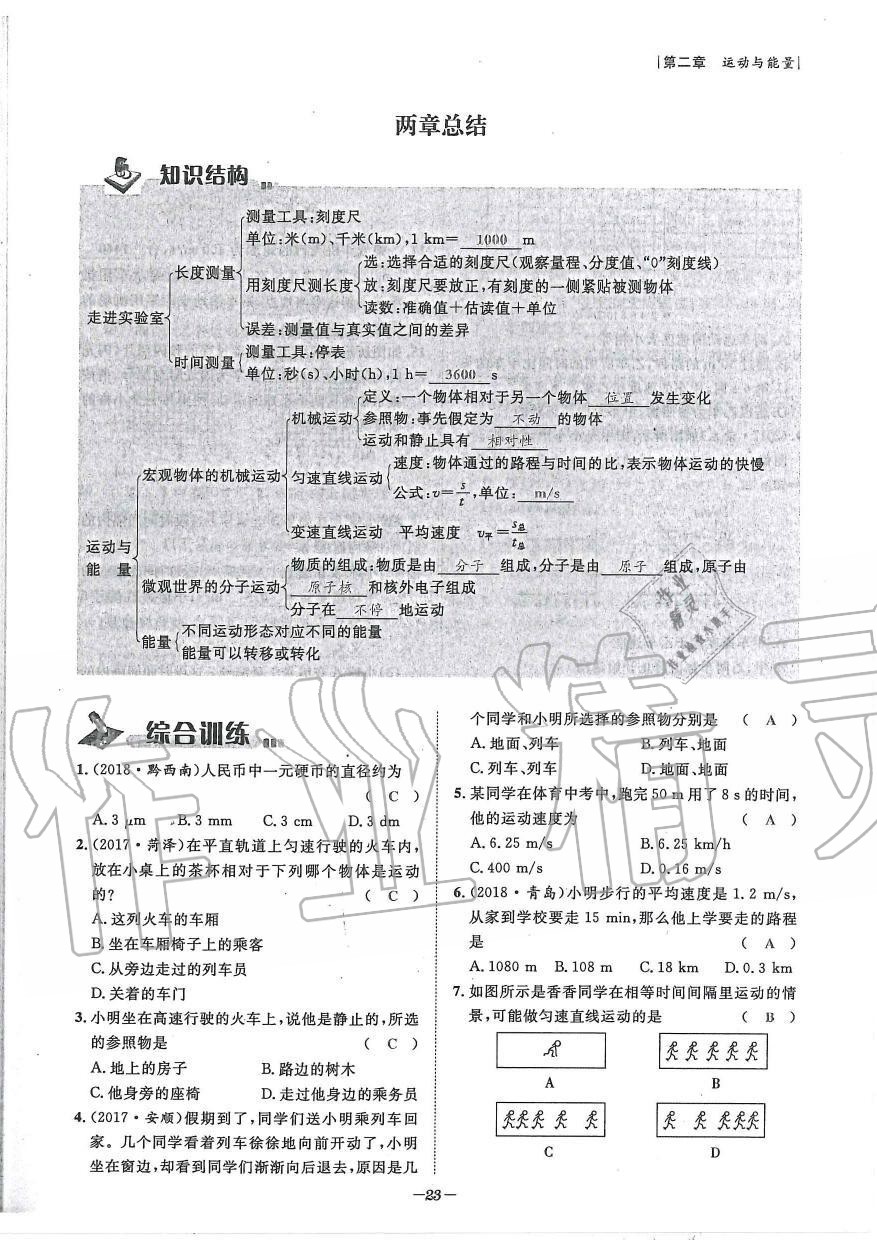 第二章 运动与能量
两章总结
知识结构
测量工具:刻度尺
单位:米(m)、千米(km),1 km= 1000 m
长度测量
选:选择合适的刻度尺(观察量程、分度值、“0”刻度线)
用刻度尺测长度
放:刻度尺要放正,有刻度的一侧紧贴被测物体
读数:准确值+估读值+单位
走进实验室
误差:测量值与真实值之间的差异
时间测量
测量工具:停表
单位:秒(s)、小时(h),1 h= 3600 s
定义:一个物体相对于另一个物体 位置 发生变化
机械运动
参照物:事先假定为 不动 的物体
运动和静止具有 相对性
宏观物体的机械运动
匀速直线运动
速度:物体通过的路程与时间的比,表示物体运动的快慢
公式:v=s/t,单位: m/s
变速直线运动 平均速度 v平=s总/t总
运动与
能 量
物质的组成:物质是由 分子 组成,分子是由 原子 组成,原子由
微观世界的分子运动
原子核 和核外电子组成
分子在 不停 地运动
能量
不同运动形态对应不同的能量
能量可以转移或转化
综合训练
1.(2018·黔西南)人民币中一元硬币的直径约为
( C )
A. 3 μm B. 3 mm C. 3 cm D. 3 dm
2.(2017·菏泽)在平直轨道上匀速行驶的火车内,
放在小桌上的茶杯相对于下列哪个物体是运动
的? ( C )
A. 这列火车的车厢
B. 坐在车厢椅子上的乘客
C. 从旁边走过的列车员
D. 关着的车门
3. 小明坐在高速行驶的火车上,说他是静止的,所选
的参照物是 ( C )
A. 地上的房子 B. 路边的树木
C. 他身旁的座椅 D. 走过他身边的乘务员
4.(2017·安顺)假期到了,同学们送小明乘列车回
家。几个同学看着列车徐徐地向前开动了,小明
坐在窗边,却看到同学们渐渐向后退去,原因是几
个同学和小明所选择的参照物分别是 ( A )
A. 地面、列车 B. 列车、地面
C. 列车、列车 D. 地面、地面
5. 某同学在体育中考中,跑完50 m用了8 s的时间,
他的运动速度为 ( A )
A. 6.25 m/s B. 6.25 km/h
C. 400 m/s D. 0.16 m/s
6.(2018·青岛)小明步行的平均速度是1.2 m/s,
从家到学校要走15 min,那么他上学要走的路程
是 ( A )
A. 1080 m B. 108 m C. 18 km D. 0.3 km
7. 如图所示是香香同学在相等时间间隔里运动的情
景,可能做匀速直线运动的是 ( B )
A B
C D
—23—
作业精灵